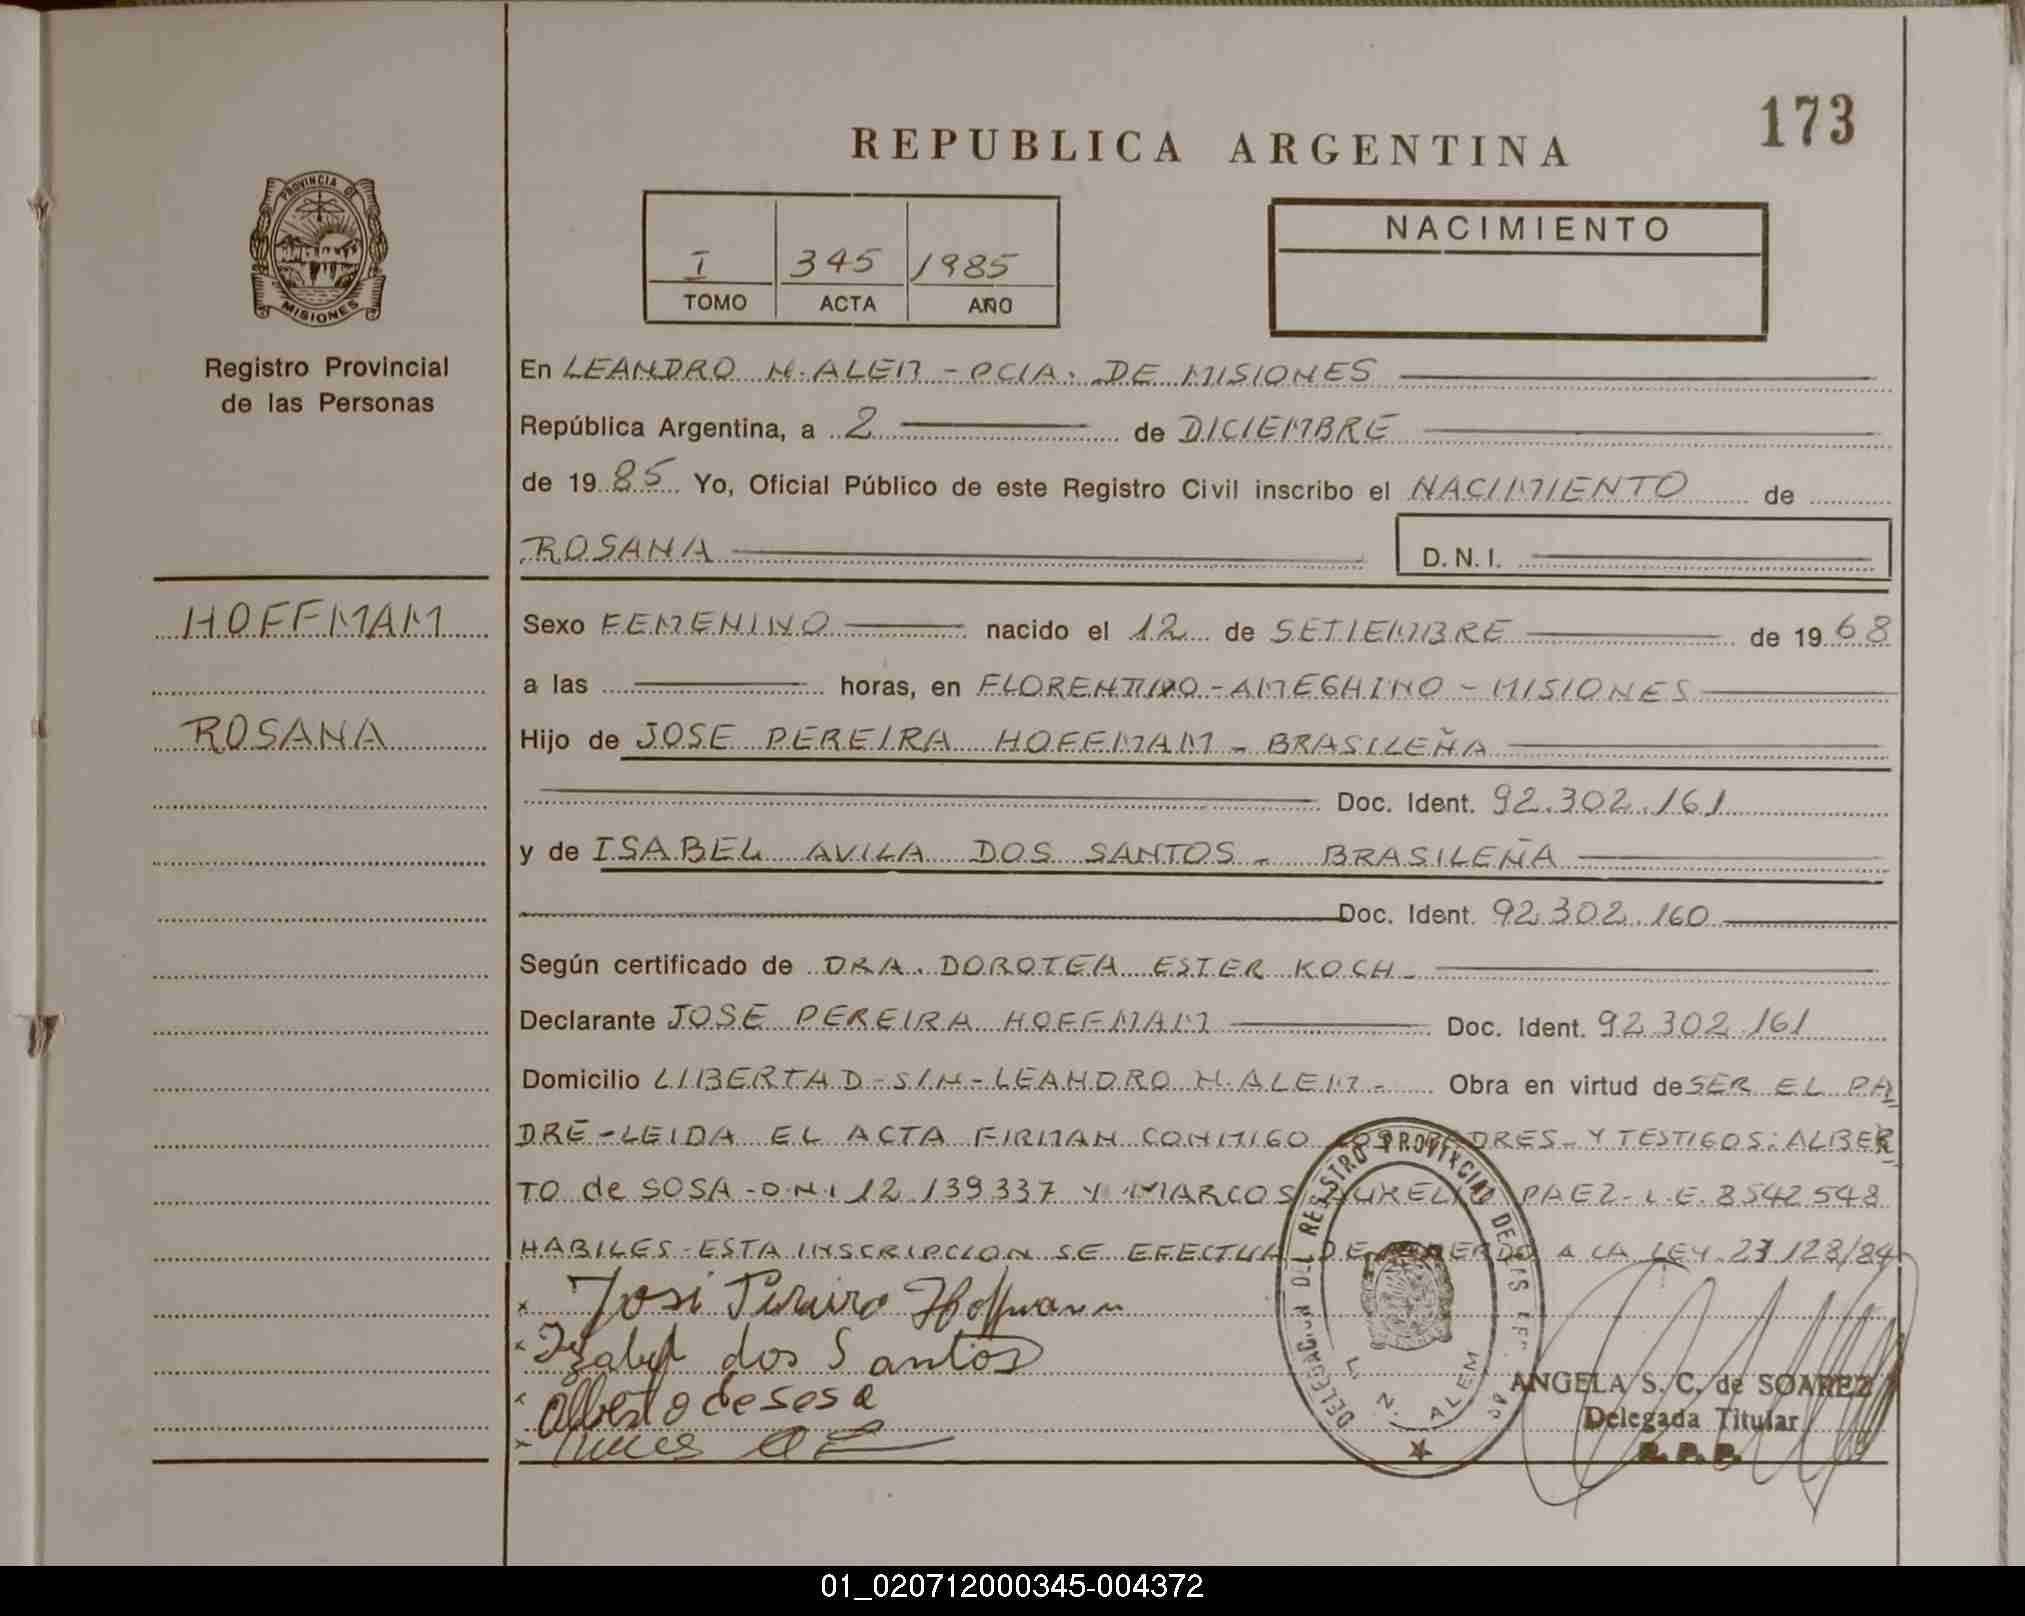 173
REPUBLICA ARGENTINA
PROVINCIA DE
MISIONES
Registro Provincial
de las Personas
I 345 1985
TOMO ACTA AÑO
NACIMIENTO
En LEANDRO N. ALEM - PCIA. DE MISIONES
República Argentina, a 2 de DICIEMBRE
de 1985 Yo, Oficial Público de este Registro Civil inscribo el NACIMIENTO de
ROSANA D. N. I.
HOFFMAM
ROSANA
Sexo FEMENINO nacido el 12 de SETIEMBRE de 1968
a las horas, en FLORENTINO - AMEGHINO - MISIONES
Hijo de JOSE PEREIRA HOFFMAM - BRASILEÑA
Doc. Ident. 92.302.161
y de ISABEL AVILA DOS SANTOS - BRASILEÑA
Doc. Ident. 92.302.160
Según certificado de DRA. DOROTEA ESTER KOCH -
Declarante JOSE PEREIRA HOFFMAM Doc. Ident. 92.302.161
Domicilio LIBERTAD - S/N - LEANDRO N. ALEM - Obra en virtud de SER EL PA
DRE - LEIDA EL ACTA FIRMAN CONMIGO LOS PADRES - Y TESTIGOS: ALBER
TO de SOSA - D.N.I 12.139337 Y MARCOS AURELIO PAEZ - L.E. 8542548
HABILES - ESTA INSCRIPCION SE EFECTUA DE ACUERDO A LA LEY 23128/84
x José Pereira Hoffmann
x Izabel dos Santos
x Alberto de sosa
x
DELEGACION DEL REGISTRO PROVINCIAL DE LAS
L. N. ALEM
ANGELA S. C. de SOAREZ
Delegada Titular
R. P. P.
01_020712000345-004372